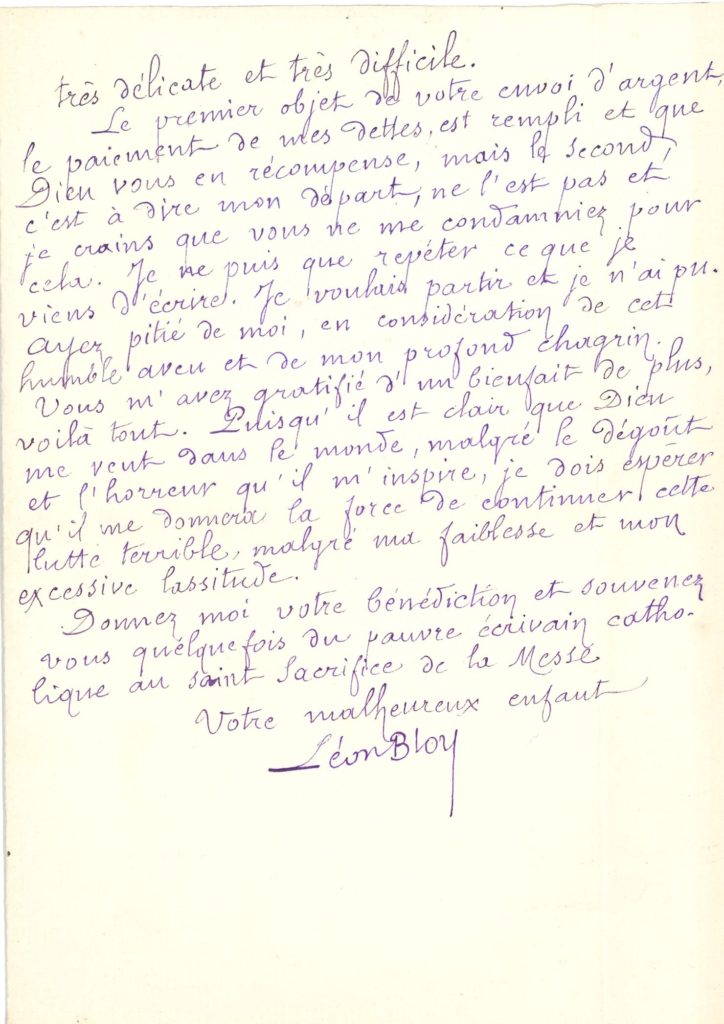 très délicate et très difficile.
Le premier objet de votre envoi d'argent,
le paiement de mes dettes, est rempli et que
Dieu vous en récompense, mais le second,
c'est à dire mon départ, ne l'est pas et
je crains que vous ne me condamniez pour
cela. Je ne puis que répéter ce que je
viens d'écrire. Je voulais partir et je n'ai pu.
Ayez pitié de moi, en considération de cet
humble aveu et de mon profond chagrin.
Vous m'avez gratifié d'un bienfait de plus,
voilà tout. Puisqu'il est clair que Dieu
me veut dans le monde, malgré le dégoût
et l'horreur qu'il m'inspire, je dois espérer
qu'il me donnera la force de continuer cette
lutte terrible, malgré ma faiblesse et mon
excessive lassitude.
Donnez moi votre bénédiction et souvenez
vous quelquefois du pauvre écrivain catho-
lique au saint Sacrifice de la Messe
Votre malheureux enfant
Léon Bloy